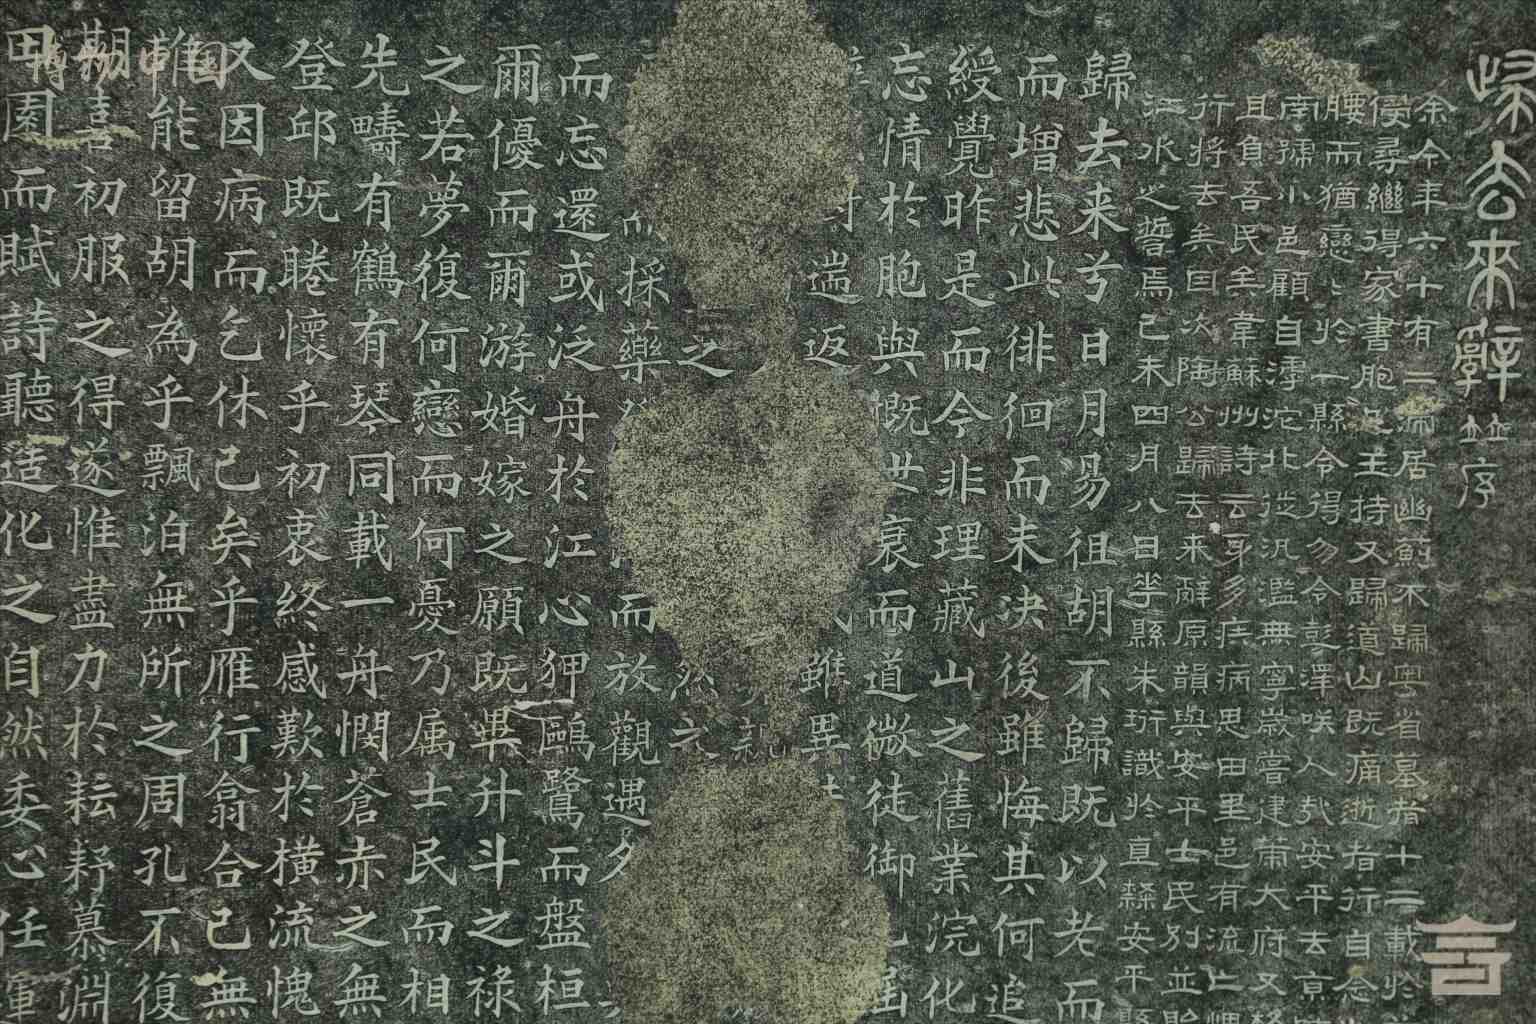 歸去來辭並序
余今年六十有二流居幽薊不歸粤省墓者十二載於
侵尋繼得家書胞兄主持又歸道山既痛逝者行自念
腰而猶戀戀於一縣令得勿令彭澤咲人於安平去京
南孺小邑顧自滹沱北從汎濫無寧歲嘗建萧大府又
且負吾民矣韋蘇州詩云身多疾病思田里邑有流亡
行將去矣因次陶公歸去来辭原韻與安平士民別並
江水之誓焉己未四月八日華縣朱珩識於直隸安平縣
歸去来兮日月易徂胡不歸既以老而
而增悲此徘徊而未决後雖悔其何追
綬覺昨是而今非理藏山之舊業浣化
忘情於胞與慨世衰而道微徒御
遄返 雖異
之 然 親
採藥 而放觀遇夕
而忘還或泛舟於江心狎鷗鷺而盤桓
爾優而爾游婚嫁之願既畢升斗之祿
之若夢復何戀而何憂乃属士民而相
先疇有鶴有琴同載一舟憫蒼赤之無
登邱既睠懷乎初衷終感歎於橫流愧
又因病而乞休已矣乎雁行翕合已無
誰能留胡為乎飄泊無所之周孔不復
期喜初服之得遂惟盡力於耘耔慕淵
田園而賦詩聽造化之自然委心任運
博物中國